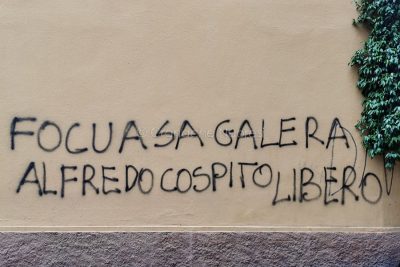 FOCU A SA GALERA
ALFREDO COSPITO LIBERO